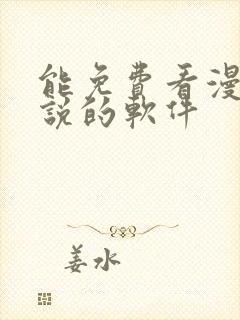 能免費看漫
說的軟件
姜水